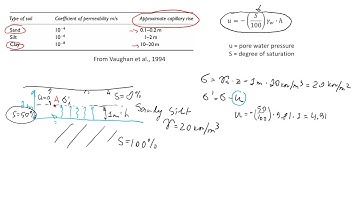 Type of soil Coefficient of permeability m/s Approximate capillary rise
Sand 10⁻⁴ 0.1–0.2 m
Silt 10⁻⁶ 1–2 m
Clay 10⁻⁸ 10–20 m
From Vaughan et al., 1994
u = -(S/100) γw · h
u = pore water pressure
S = degree of saturation
S=50%
u=0 A
S=0%
1m = h
S=100%
Sandy silt
γ=20 kN/m³
σ = γ · z = 1m · 20 kN/m³ = 20 kN/m²
σ' = σ - u
u = -(50/100) · 9.81 · 1 = 4,91